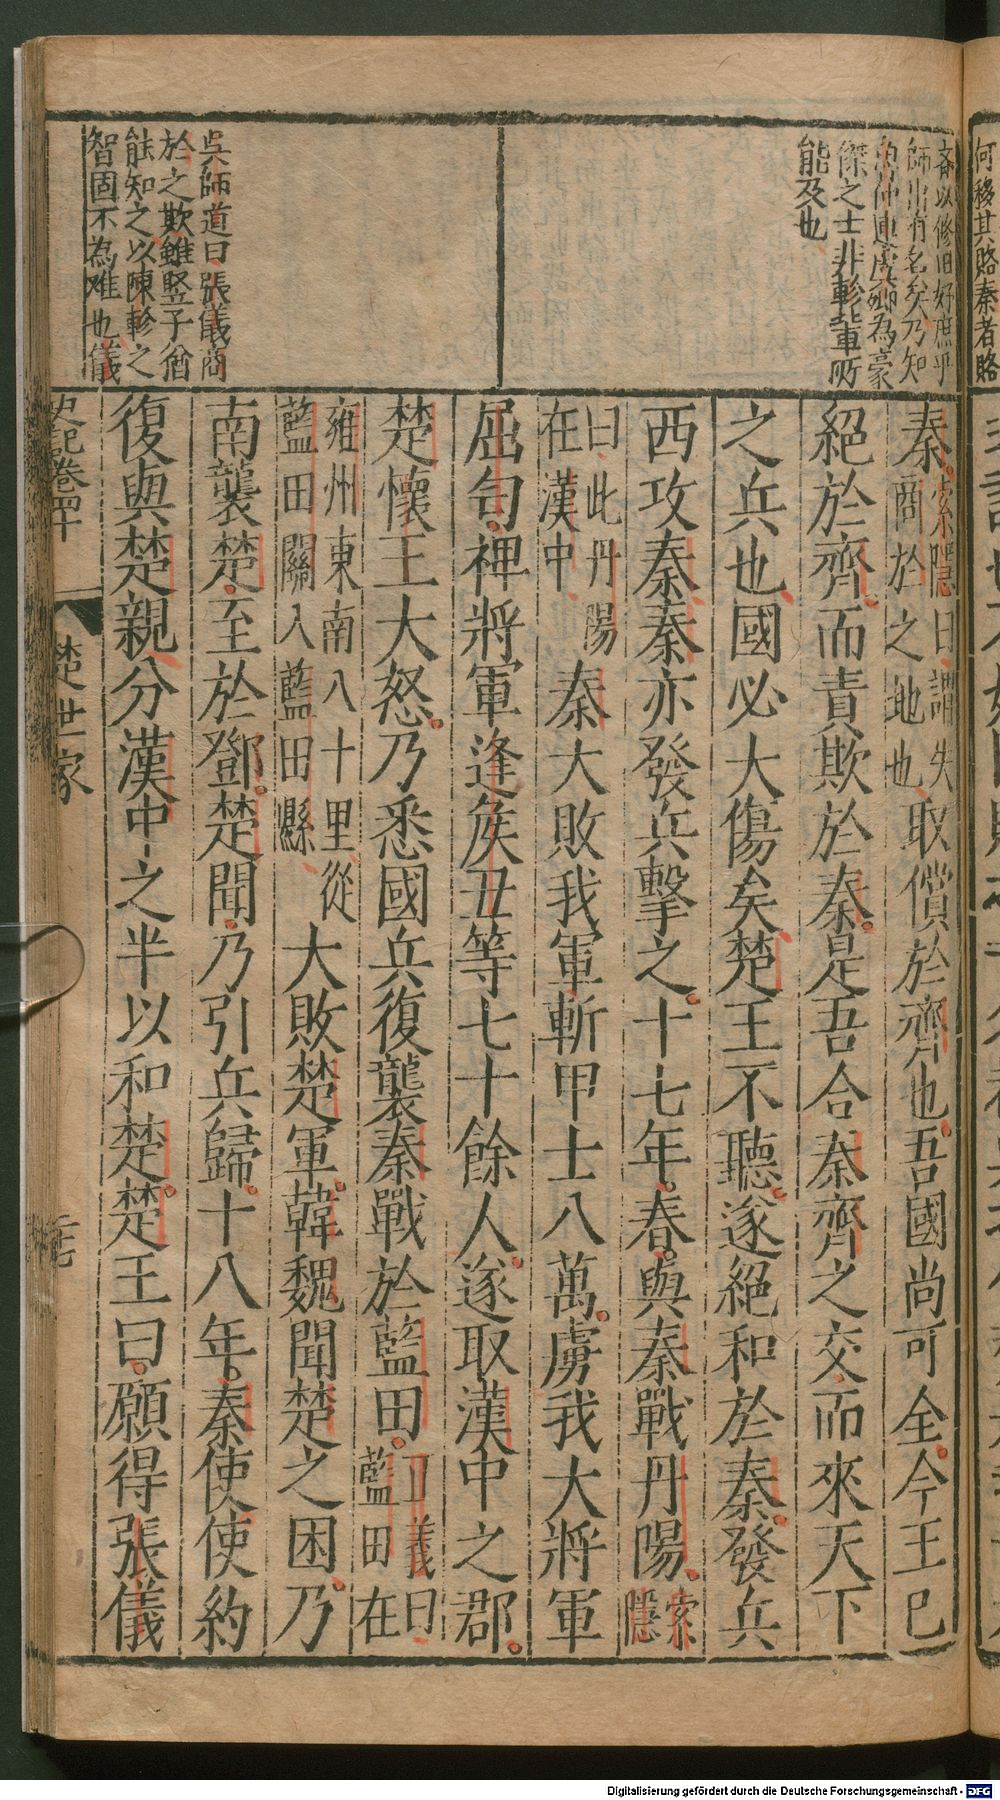 何移其賂秦者賂
吝以修旧好庶乎
師出有名矣乃知
魯仲連虞卿為豪
傑之士非軫輩所
能及也
吳師道曰張儀商
於之欺雖竪子猶
能知之以陳軫之
智固不為难也儀
秦索隱曰謂失
商於之地也取償於齊也吾國尚可全今王已
絕於齊而責欺於秦是吾合秦齊之交而來天下
之兵也國必大傷矣楚王不聽遂絕和於秦發兵
西攻秦秦亦發兵擊之十七年春與秦戰丹陽索
隱
曰此丹陽
在漢中秦大敗我軍斬甲士八萬虜我大將軍
屈匄裨將軍逢侯丑等七十餘人遂取漢中之郡
楚懷王大怒乃悉國兵復襲秦戰於藍田正義曰
藍田在
雍州東南八十里從
藍田關入藍田縣大敗楚軍韓魏聞楚之困乃
南襲楚至於鄧楚聞乃引兵歸十八年秦使使約
復與楚親分漢中之半以和楚楚王曰願得張儀
史記卷四十
楚世家
二十七
Digitalisierung gefördert durch die Deutsche Forschungsgemeinschaft - DFG